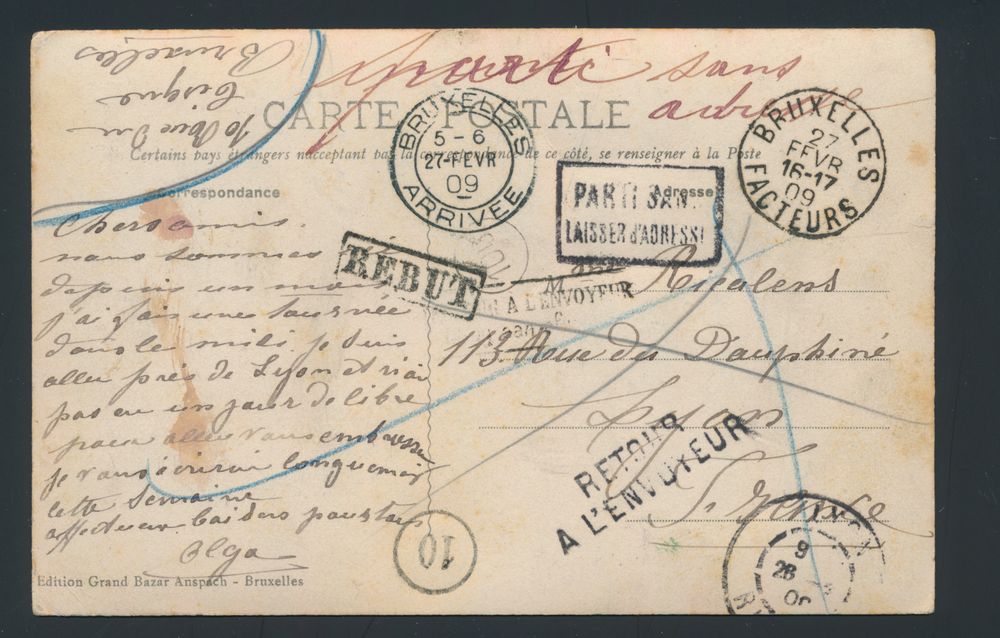 parti sans
adresse
Bruxelles
10 Rue du
CARTE POSTALE
Certains pays étrangers n'acceptant pas la correspondance de ce côté, se renseigner à la Poste
BRUXELLES
5-6
27-FEVR
09
ARRIVÉE
BRUXELLES
27
FEVR
16-17
09
FACTEURS
Correspondance
Adresse
PARTI SANS
LAISSER d'ADRESSE
REBUT
A L'ENVOYEUR
Chers amis
nous sommes
depuis un mois
j'ai fais une tournée
dans le midi je suis
aller près de Lyon et n'ai
pas eu un jour de libre
pour aller vous embrasser
je vous écrirai longuement
cette semaine
affectueux baisers pour tous
Olga
M Ricalens
113 Rue du Dauphiné
Lyon
France
RETOUR
A L'ENVOYEUR
10
LYON
9
28
09
Edition Grand Bazar Anspach - Bruxelles